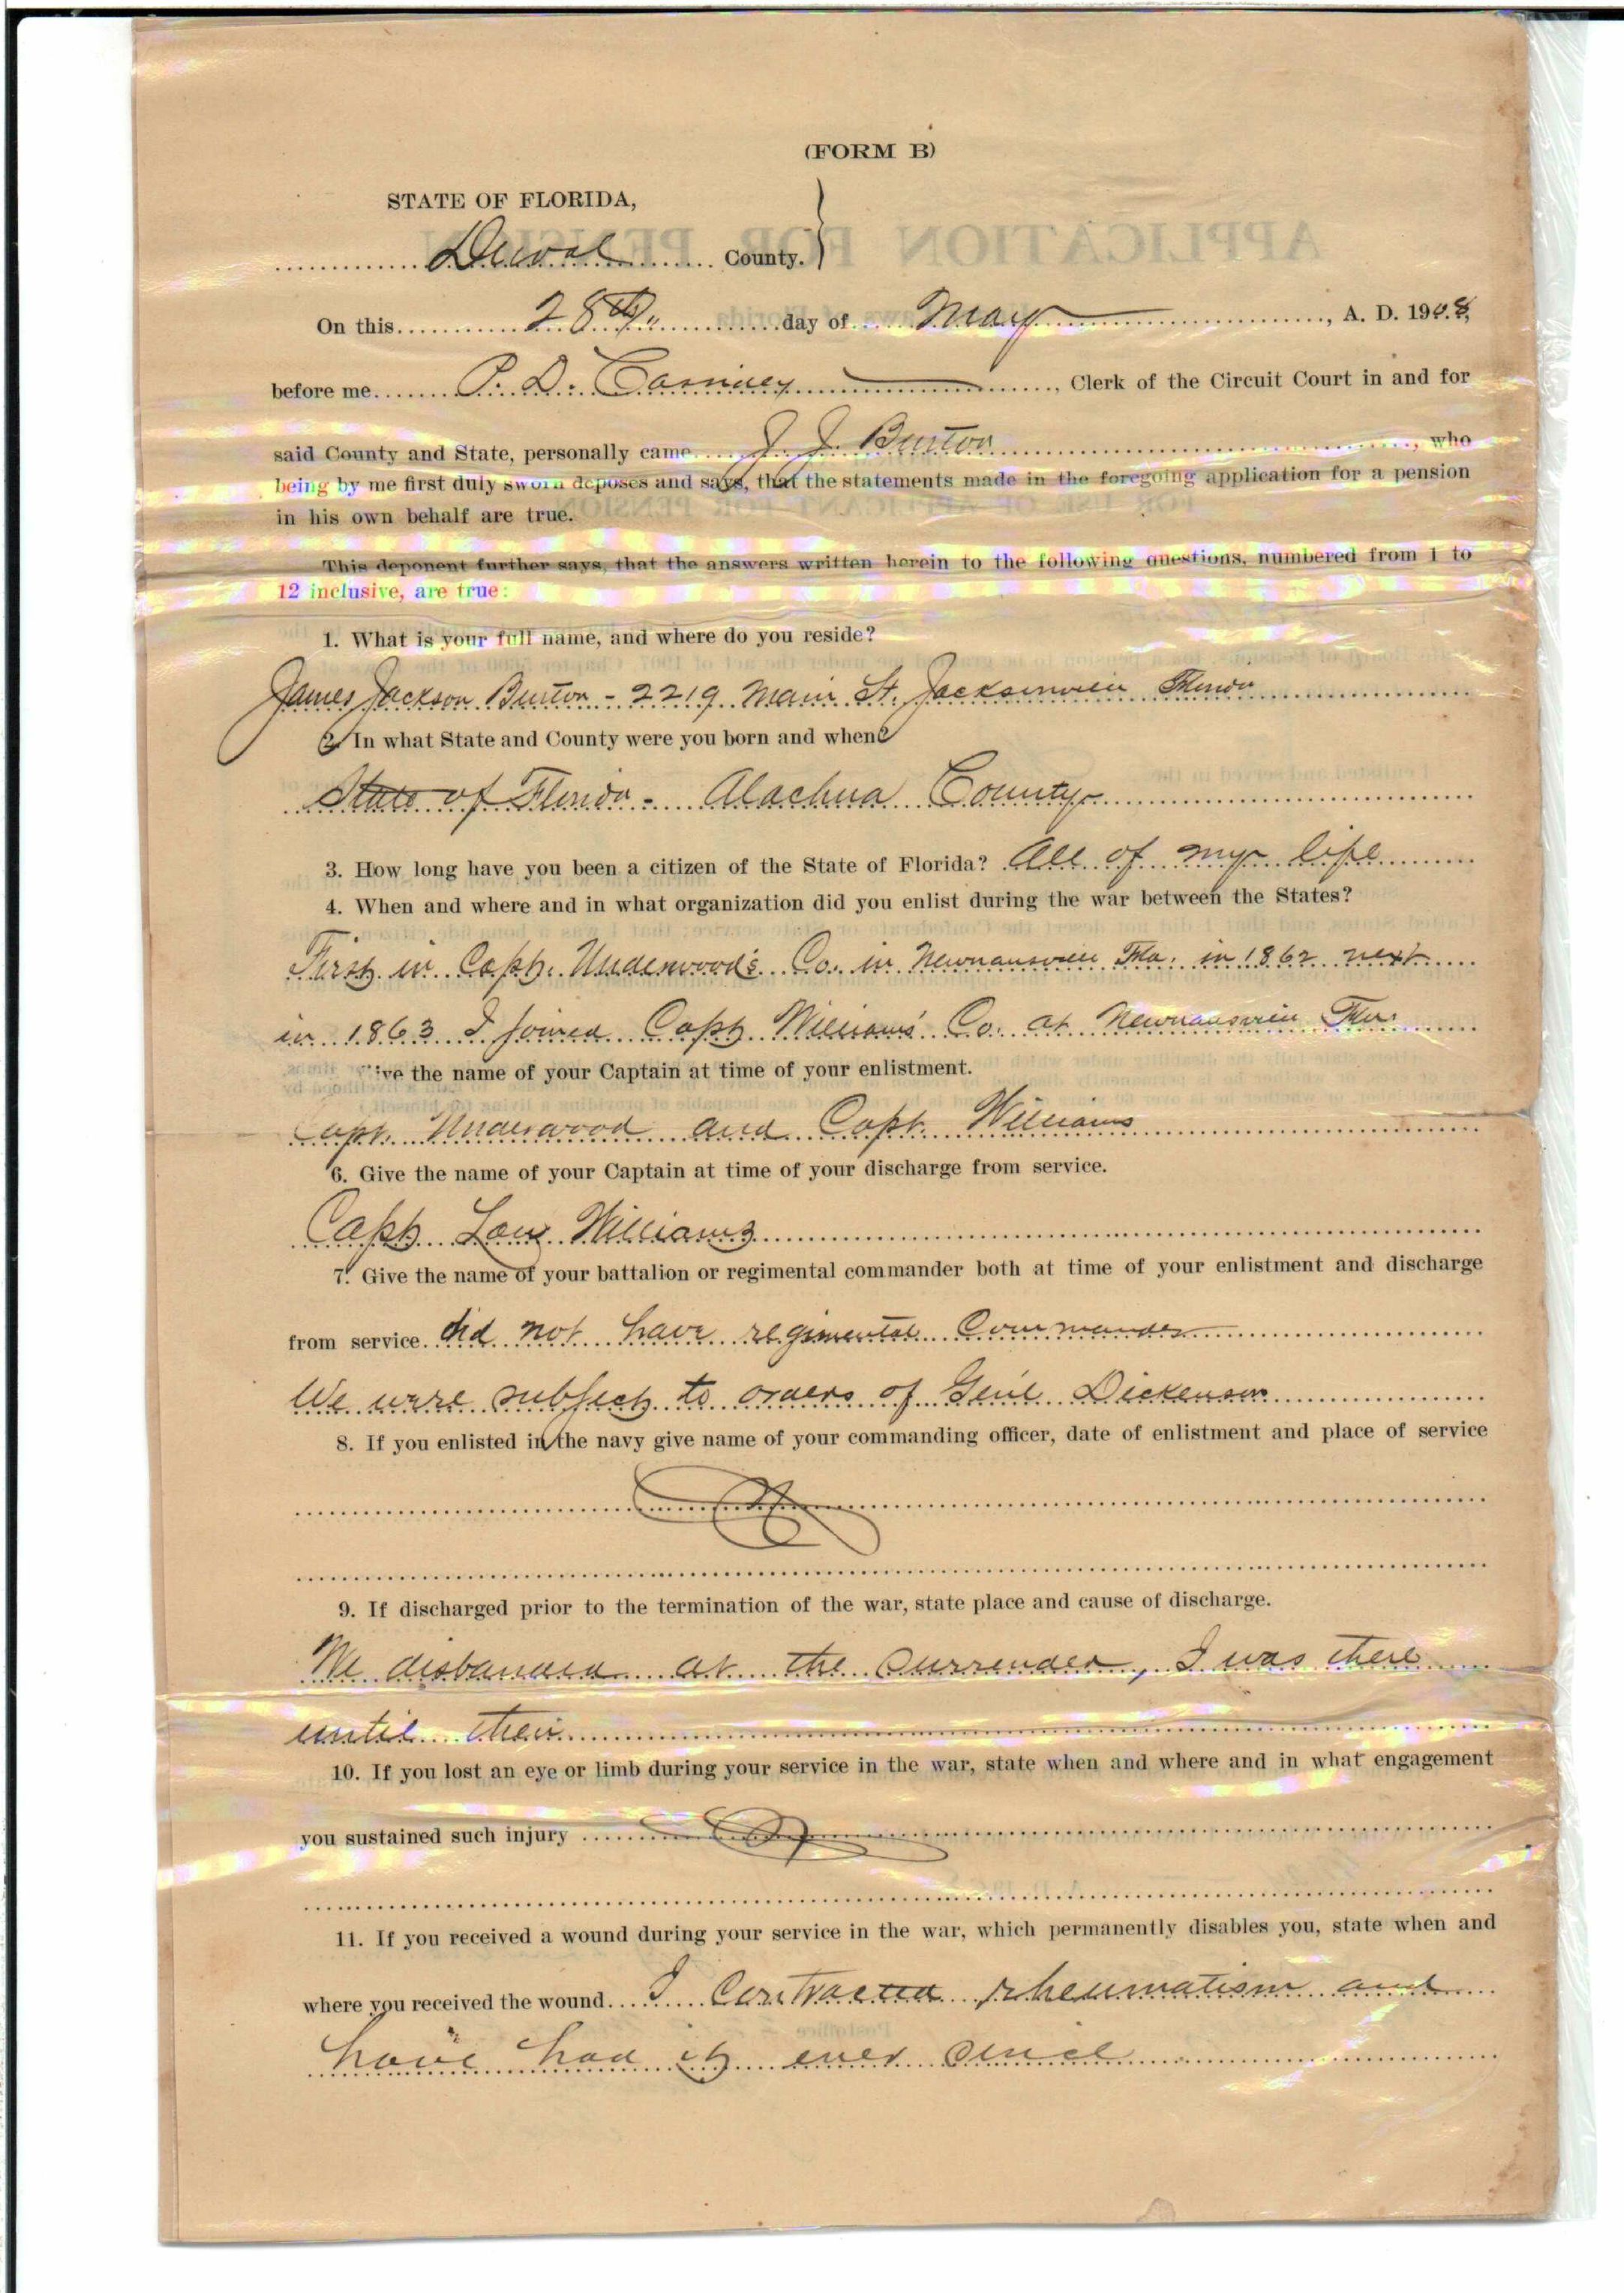 (FORM B)
STATE OF FLORIDA,
Duval County.
On this 28th day of May, A. D. 1908,
before me P. D. Cassidey, Clerk of the Circuit Court in and for
said County and State, personally came J. J. Burton, who
being by me first duly sworn deposes and says, that the statements made in the foregoing application for a pension
in his own behalf are true.
This deponent further says, that the answers written herein to the following questions, numbered from 1 to
12 inclusive, are true:
1. What is your full name, and where do you reside?
James Jackson Burton - 2219 Main St. Jacksonville Florida
2. In what State and County were you born and when?
State of Florida - Alachua County
3. How long have you been a citizen of the State of Florida? All of my life
4. When and where and in what organization did you enlist during the war between the States?
First in Capt. Underwood's Co. in Newnansville Fla. in 1862 next
in 1863 I joined Capt Williams' Co. at Newnansville Fla.
ive the name of your Captain at time of your enlistment.
Capt. Underwood and Capt. Williams
6. Give the name of your Captain at time of your discharge from service.
Capt Low Williams
7. Give the name of your battalion or regimental commander both at time of your enlistment and discharge
from service did not have regimental Commander
We were subject to orders of Gen'l Dickenson
8. If you enlisted in the navy give name of your commanding officer, date of enlistment and place of service
9. If discharged prior to the termination of the war, state place and cause of discharge.
We disbanded at the surrender, I was there
until then
10. If you lost an eye or limb during your service in the war, state when and where and in what engagement
you sustained such injury
11. If you received a wound during your service in the war, which permanently disables you, state when and
where you received the wound. I contracted rheumatism and
have had it ever since